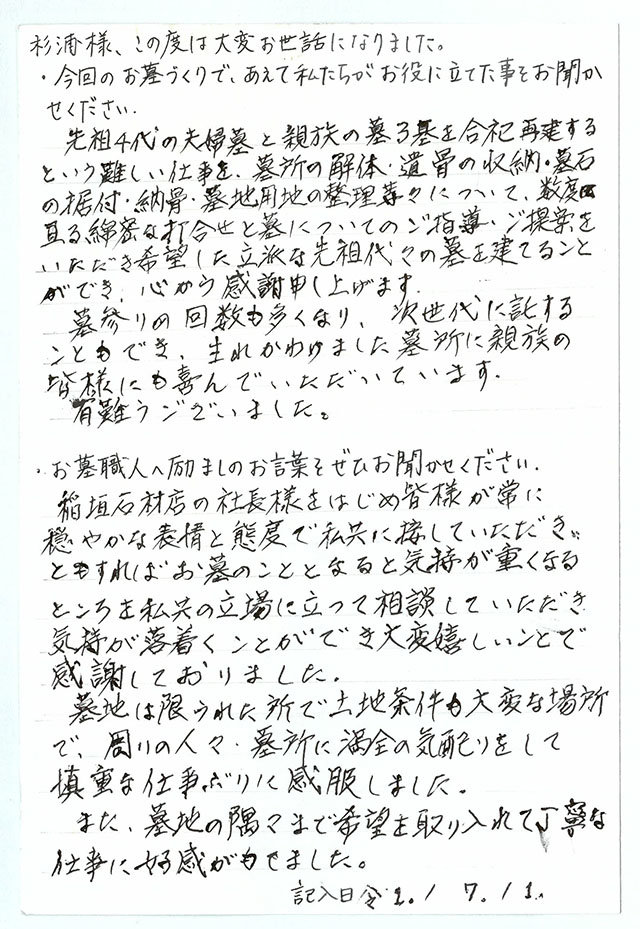 杉浦様、この度は大変お世話になりました。
・今回のお墓づくりで、あえて私たちがお役に立てた事をお聞か
せください。
先祖4代の夫婦墓と親族の墓3基を合祀再建する
という難しい仕事を、墓所の解体・遺骨の収納・墓石
の据付・納骨・墓地用地の整理等々について、数度に
亘る綿密な打合せと墓についてのご指導・ご提案を
いただき希望した立派な先祖代々の墓を建てること
ができ、心から感謝申し上げます。
墓参りの回数も多くなり、次世代に託する
こともでき、生れかわりました墓所に親族の
皆様にも喜んでいただいています。
有難うございました。
・お墓職人へ励ましのお言葉をぜひお聞かせください。
稲垣石材店の社長様をはじめ皆様が常に
穏やかな表情と態度で私共に接していただき、
ともすればお墓のこととなると気持が重くなる
ところを私共の立場に立って相談していただき
気持が落着くことができ大変嬉しいことで
感謝しておりました。
墓地は限られた所で土地条件も大変な場所
で、周りの人々・墓所に満全の気配りをして
慎重な仕事ぶりに感服しました。
また、墓地の隅々まで希望を取り入れて丁寧な
仕事に好感がもてました。
記入日 令2.1 7.11.